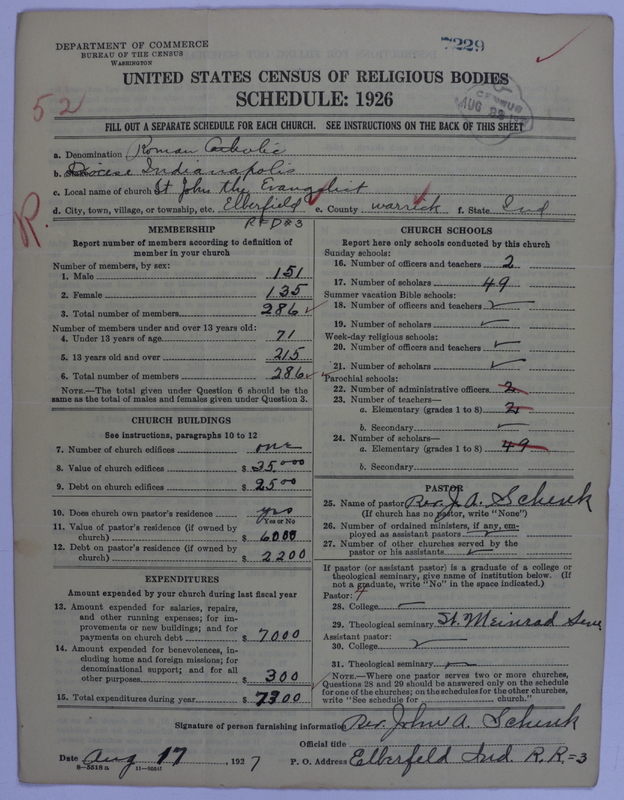 DEPARTMENT OF COMMERCE
BUREAU OF THE CENSUS
WASHINGTON
7229
UNITED STATES CENSUS OF RELIGIOUS BODIES
SCHEDULE: 1926
52
CENSUS
AUG 23
FILL OUT A SEPARATE SCHEDULE FOR EACH CHURCH. SEE INSTRUCTIONS ON THE BACK OF THIS SHEET
a. Denomination Roman Catholic
b. Diocese Indianapolis
c. Local name of church St John the Evangelist
d. City, town, village, or township, etc. Elberfield e. County warrick f. State Ind
R F D #3
R.
MEMBERSHIP
Report number of members according to definition of
member in your church
Number of members, by sex:
1. Male 151
2. Female 135
3. Total number of members 286
Number of members under and over 13 years old:
4. Under 13 years of age 71
5. 13 years old and over 215
6. Total number of members 286
NOTE.—The total given under Question 6 should be the
same as the total of males and females given under Question 3.
CHURCH BUILDINGS
See instructions, paragraphs 10 to 12
7. Number of church edifices one
8. Value of church edifices $ 35.000
9. Debt on church edifices $ 2500
10. Does church own pastor's residence yes
Yes or No
11. Value of pastor's residence (if owned by
church) $ 6000
12. Debt on pastor's residence (if owned by
church) $ 2200
EXPENDITURES
Amount expended by your church during last fiscal year
13. Amount expended for salaries, repairs,
and other running expenses; for im-
provements or new buildings; and for
payments on church debt $ 7000
14. Amount expended for benevolences, in-
cluding home and foreign missions; for
denominational support; and for all
other purposes $ 300
15. Total expenditures during year $ 7300
CHURCH SCHOOLS
Report here only schools conducted by this church
Sunday schools:
16. Number of officers and teachers 2
17. Number of scholars 49
Summer vacation Bible schools:
18. Number of officers and teachers
19. Number of scholars
Week-day religious schools:
20. Number of officers and teachers
21. Number of scholars
Parochial schools:
22. Number of administrative officers 2
23. Number of teachers—
a. Elementary (grades 1 to 8) 2
b. Secondary
24. Number of scholars—
a. Elementary (grades 1 to 8) 49
b. Secondary
PASTOR
25. Name of pastor Rev. J. A. Schenk
(If church has no pastor, write "None")
26. Number of ordained ministers, if any, em-
ployed as assistant pastors
27. Number of other churches served by the
pastor or his assistants
If pastor (or assistant pastor) is a graduate of a college or
theological seminary, give name of institution below. (If
not a graduate, write "No" in the space indicated.)
Pastor:
28. College
29. Theological seminary St. Meinrad Sem
Assistant pastor:
30. College
31. Theological seminary
NOTE.—Where one pastor serves two or more churches,
Questions 28 and 29 should be answered only on the schedule
for one of the churches; on the schedules for the other churches,
write "See schedule for church."
Signature of person furnishing information Rev. John A. Schenk
Official title
Date Aug 17, 1927 P. O. Address Elberfeld Ind. R. R. =3
8—5518 a